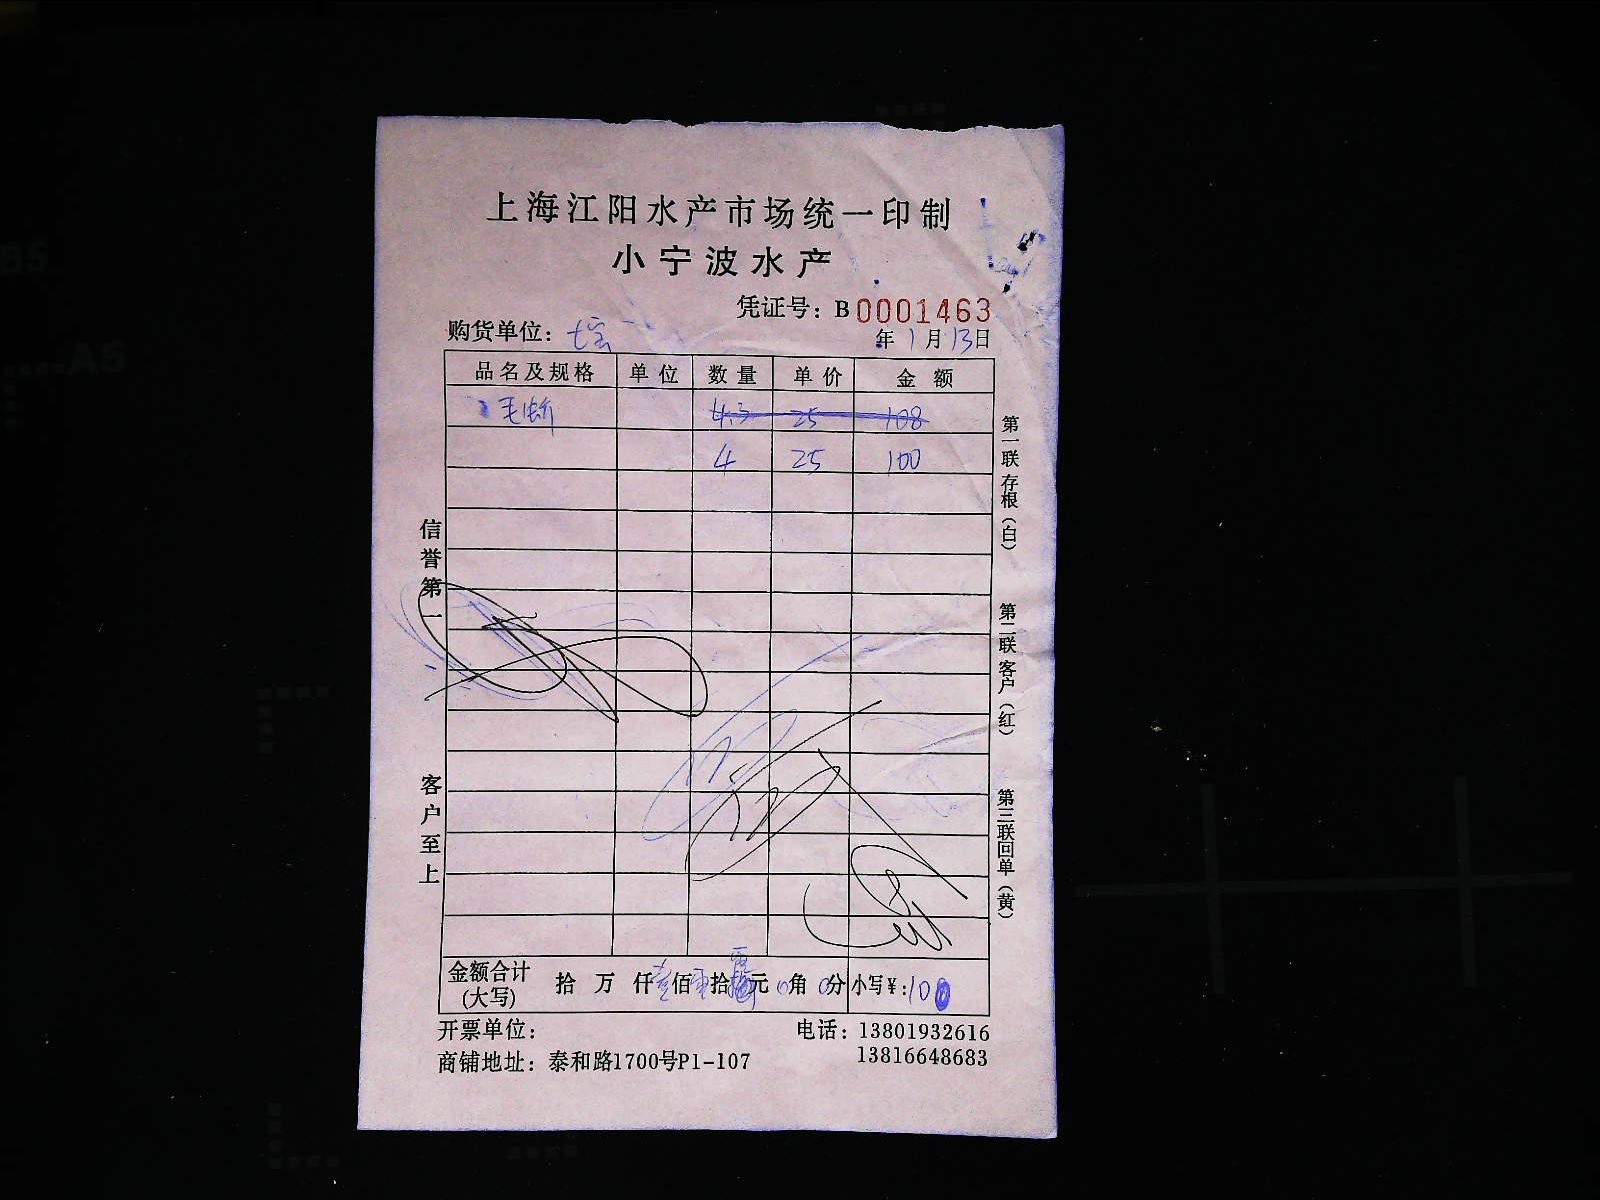 上海江阳水产市场统一印制
小宁波水产
凭证号：B0001463
购货单位：
年 1 月 13 日
品名及规格 单位 数量 单价 金额
毛蚶 4.3 25 108
4 25 100
信誉第一
客户至上
第一联存根（白）
第二联客户（红）
第三联回单（黄）
金额合计（大写） 拾 万 仟壹佰零拾零元0角0分 小写￥：100
开票单位：
电话：13801932616
商铺地址：泰和路1700号P1-107
13816648683
B5
A5